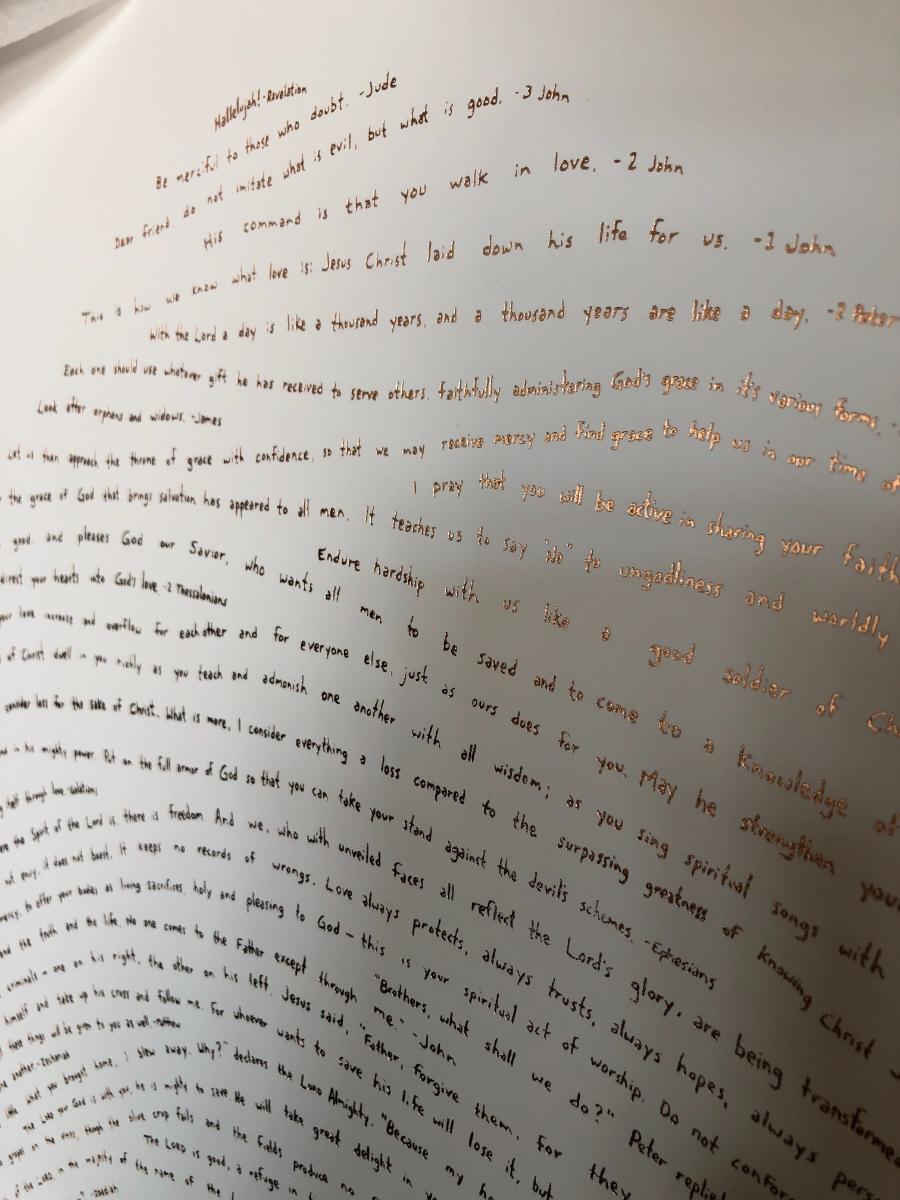 Hallelujah! -Revelation
Be merciful to those who doubt. -Jude
Dear friend, do not imitate what is evil, but what is good. -3 John
His command is that you walk in love. -2 John
This is how we know what love is: Jesus Christ laid down his life for us. -1 John
With the Lord a day is like a thousand years, and a thousand years are like a day. -2 Peter
Each one should use whatever gift he has received to serve others, faithfully administering God's grace in its various forms. -
Look after orphans and widows. -James
Let us then approach the throne of grace with confidence, so that we may receive mercy and find grace to help us in our time of
I pray that you will be active in sharing your faith
the grace of God that brings salvation has appeared to all men. It teaches us to say "No" to ungodliness and worldly
Endure hardship with us like a good soldier of Ch
good, and pleases God our Savior, who wants all men to be saved and to come to a knowledge of
direct your hearts into God's love -2 Thessalonians
your love increase and overflow for each other and for everyone else, just as ours does for you. May he strengthen your
of Christ dwell in you richly as you teach and admonish one another with all wisdom; as you sing spiritual songs with
consider loss for the sake of Christ. What is more, I consider everything a loss compared to the surpassing greatness of knowing Christ
and in his mighty power. Put on the full armor of God so that you can take your stand against the devil's schemes. -Ephesians
through love -Galatians
the Spirit of the Lord is, there is freedom And we, who with unveiled faces all reflect the Lord's glory, are being transformed
not envy, it does not boast. It keeps no records of wrongs. Love always protects, always trusts, always hopes, always pers
mercy, to offer your bodies as living sacrifices, holy and pleasing to God – this is your spiritual act of worship. Do not conform
"Brothers, what shall we do?" Peter replied
and the truth and the life. No one comes to the Father except through me." -John
criminals – one on his right, the other on his left. Jesus said, "Father, forgive them, for they
himself and take up his cross and follow me. For whoever wants to save his life will lose it, but
these things will be given to you as well -Matthew
another -Zechariah
what you brought home, I blew away. Why?" declares the LORD Almighty. "Because my ho
The LORD your God is with you, he is mighty to save He will take great delight in yo
grapes on the vines, though the olive crop fails and the fields produce no
The LORD is good, a refuge in
of the LORD, in the majesty of the name of the L